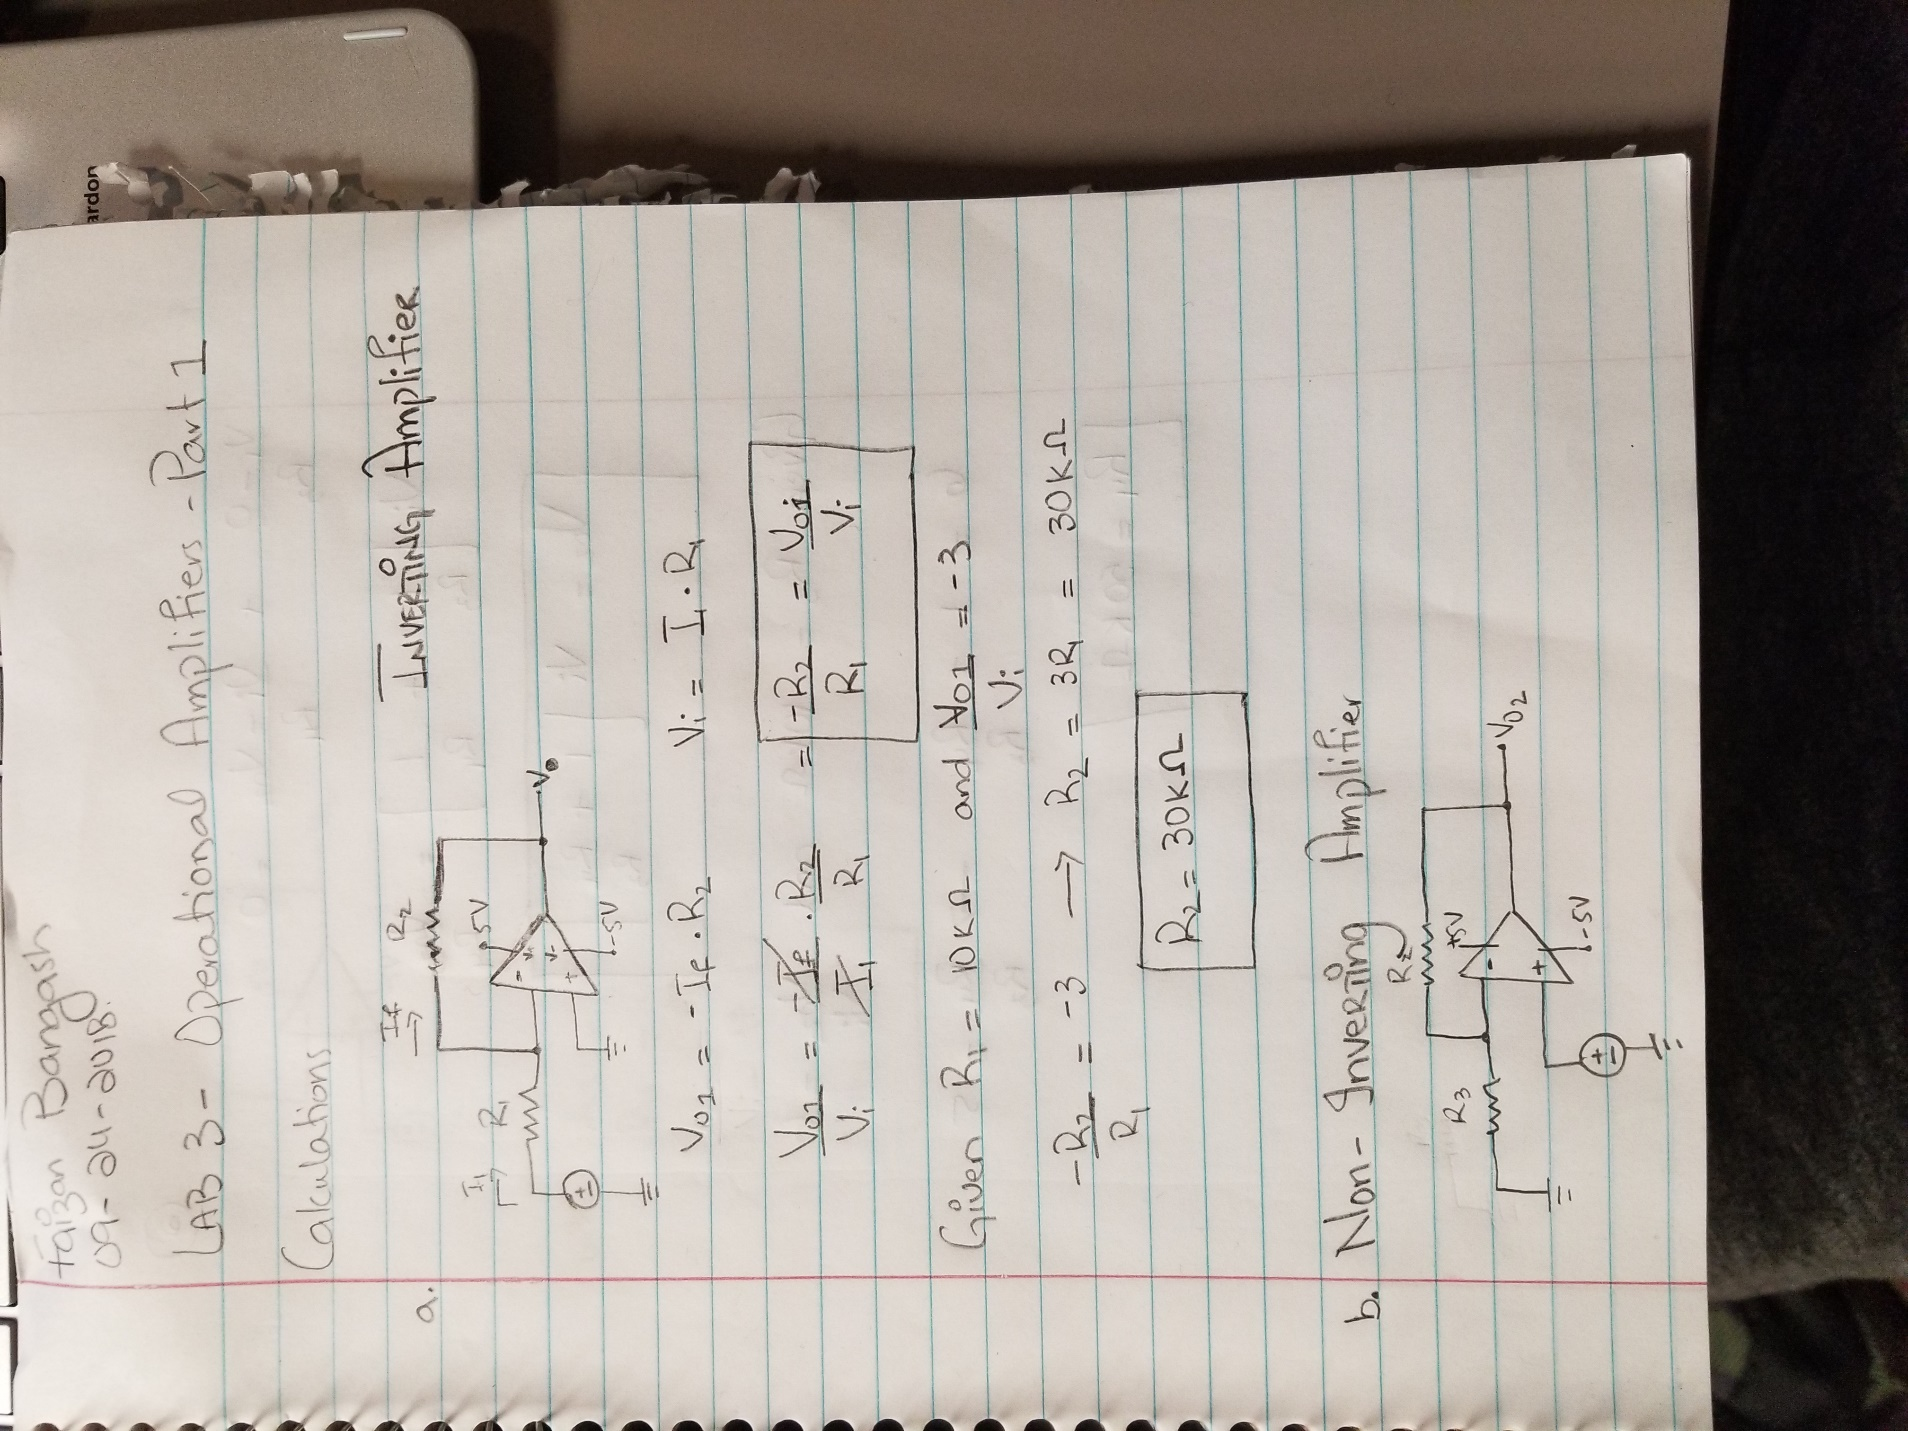 Faizan Bangash
09-24-2018
LAB 3 - Operational Amplifiers - Part 1
Calculations
a.
INVERTING Amplifier
If →
R2
I1 →
R1
5V
-
V+
V-
+
-5V
Vo
±
Vo1 = -If · R2 Vi = I1 · R1
Vo1/Vi = -If/I1 · R2/R1 = -R2/R1 = Vo1/Vi
Given R1 = 10KΩ and Vo1/Vi = -3
-R2/R1 = -3 → R2 = 3R1 = 30KΩ
R2 = 30KΩ
b. Non-Inverting Amplifier
R3
+5V
-
+
-5V
Vo2
±
ardon